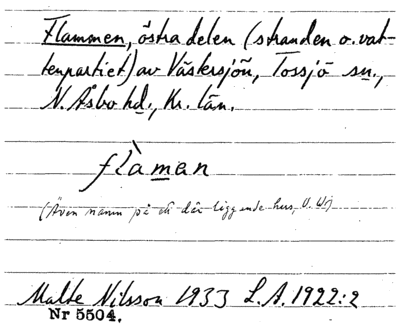 Flammen, östra delen (stranden o. vat-
tenpartiet) av Väskersjön, Tossjö sn.,
N. Åsbo hd., Kr. län.
flàman
(Även namn på ett där liggende hus,
Malte Nilsson 1933 L.A. 1922:2
Nr 5504.